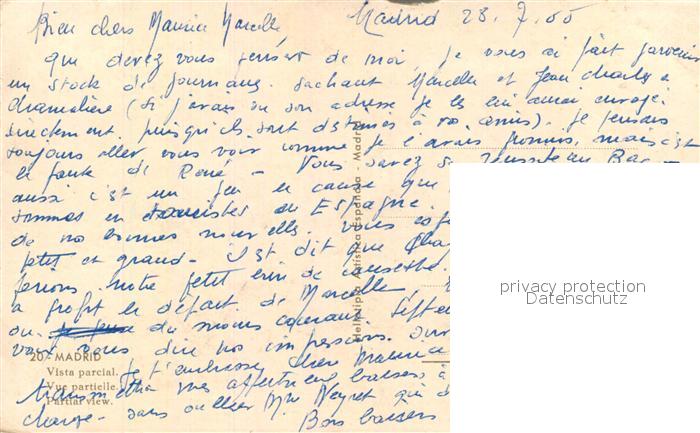 Bien chers Maurice Marcelle,
Madrid 23.7.55
que devez vous penser de moi, je vous ai fait parvenir
un stock de journaux. Sachant Marcelle et Jean Charles à
Chamalière (si j'avais eu son adresse je les lui aurai envoyé
directement, puisqu'ils sont destinés à vos amis). Je pensais
toujours aller vous voir comme je l'avais promis, mais c'est
la faute de René - Vous savez sa réussite au Bac -
aussi c'est un peu la cause que
sommes en touristes en Espagne.
de nos bonnes nouvelles. Vous
petit et grand - Il est dit que
ferions notre petit brin de causette.
à profit le départ de Marcelle,
ou du moins courant Sept
vous dire nos impressions. Sur
Je t'embrasse, cher Maurice
transmettre mes affectueux baisers à
charge - sans oublier Mme Neyret qui
Bons baisers
20.- MADRID
Vista parcial.
Vue partielle.
Partial view.
Heliotipia Artística Española - Madrid
privacy protection
Datenschutz